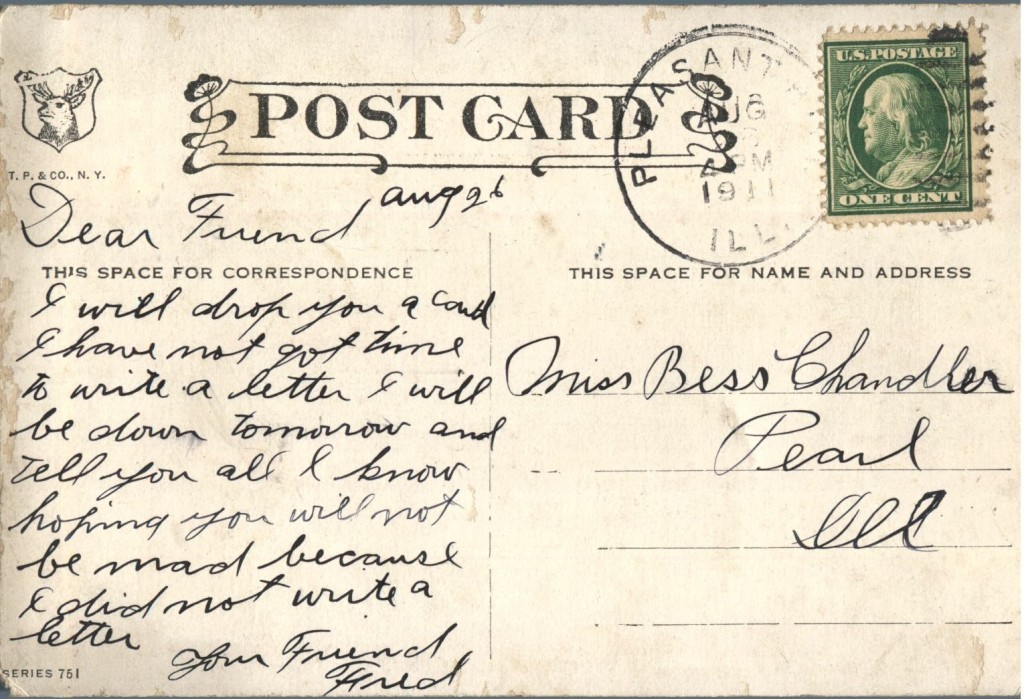 POST CARD
T. P. & CO., N. Y.
PLEASANT
AUG
PM
1911
ILL.
U.S. POSTAGE
ONE CENT
Aug 26
Dear Friend
THIS SPACE FOR CORRESPONDENCE
I will drop you a card
I have not got time
to write a letter I will
be down tomorrow and
tell you all I know
hoping you will not
be mad because
I did not write a
letter
Your Friend
Fred
SERIES 751
THIS SPACE FOR NAME AND ADDRESS
Miss Bess Chandler
Pearl
Ill